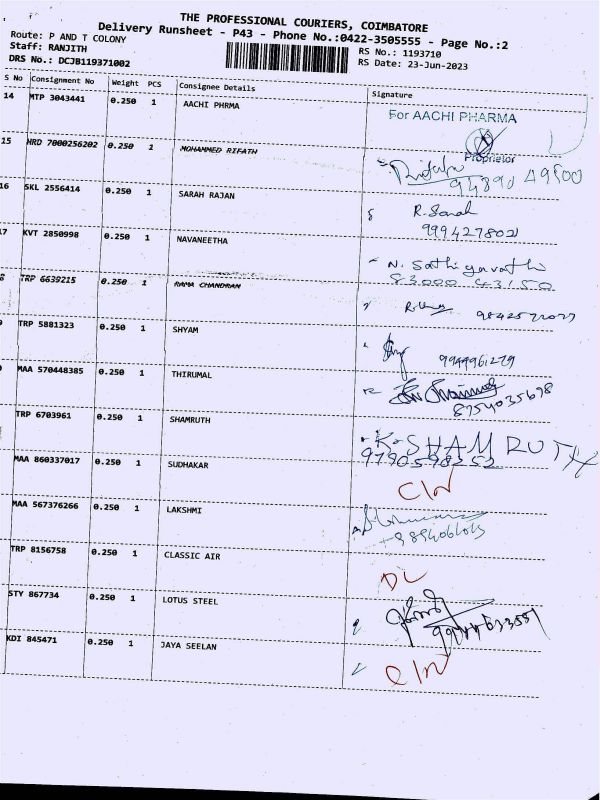 THE PROFESSIONAL COURIERS, COIMBATORE
Delivery Runsheet - P43 - Phone No.:0422-3505555 - Page No.:2
Route: P AND T COLONY
Staff: RANJITH
RS No.: 1193710
DRS No.: DCJB119371002
RS Date: 23-Jun-2023
S No Consignment No Weight PCS Consignee Details Signature
14 MTP 3043441 0.250 1 AACHI PHRMA For AACHI PHARMA
Proprietor
15 HRD 7000256202 0.250 1 MOHAMMED RIFATH
94890 49500
16 SKL 2556414 0.250 1 SARAH RAJAN R. Sarah
999427802
17 KVT 2850998 0.250 1 NAVANEETHA N. Sathiyavathi
83000 43150
8 TRP 6639215 0.250 1 RAMA CHANDRAN
9 TRP 5881323 0.250 1 SHYAM
9944961279
0 MAA 570448385 0.250 1 THIRUMAL
8754035698
TRP 6703961 0.250 1 SHAMRUTH K. SHAMRUTH
9790598252
MAA 860337017 0.250 1 SUDHAKAR
MAA 567376266 0.250 1 LAKSHMI
TRP 8156758 0.250 1 CLASSIC AIR DL
STY 867734 0.250 1 LOTUS STEEL
KDI 845471 0.250 1 JAYA SEELAN